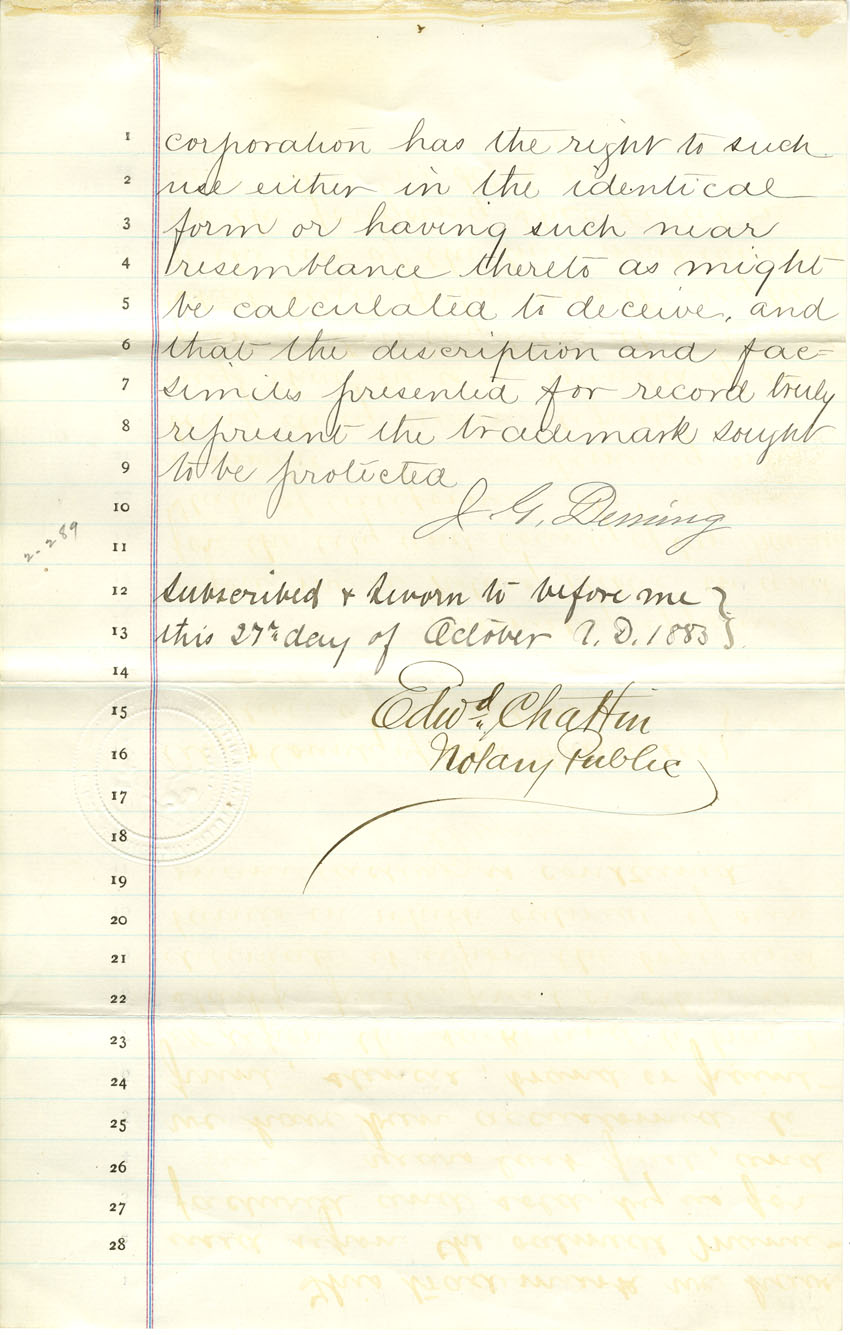 1 corporation has the right to such
2 use either in the identical
3 form or having such near
4 resemblance thereto as might
5 be calculated to deceive, and
6 that the description and fac-
7 similes presented for record truly
8 represent the trademark sought
9 to be protected
10 J. G. Deming
11
2-289
12 Subscribed & Sworn to before me }
13 this 27th day of October A.D. 1883 }
14
15 Edwd. Chattin
16 Notary Public
17
18
19
20
21
22
23
24
25
26
27
28